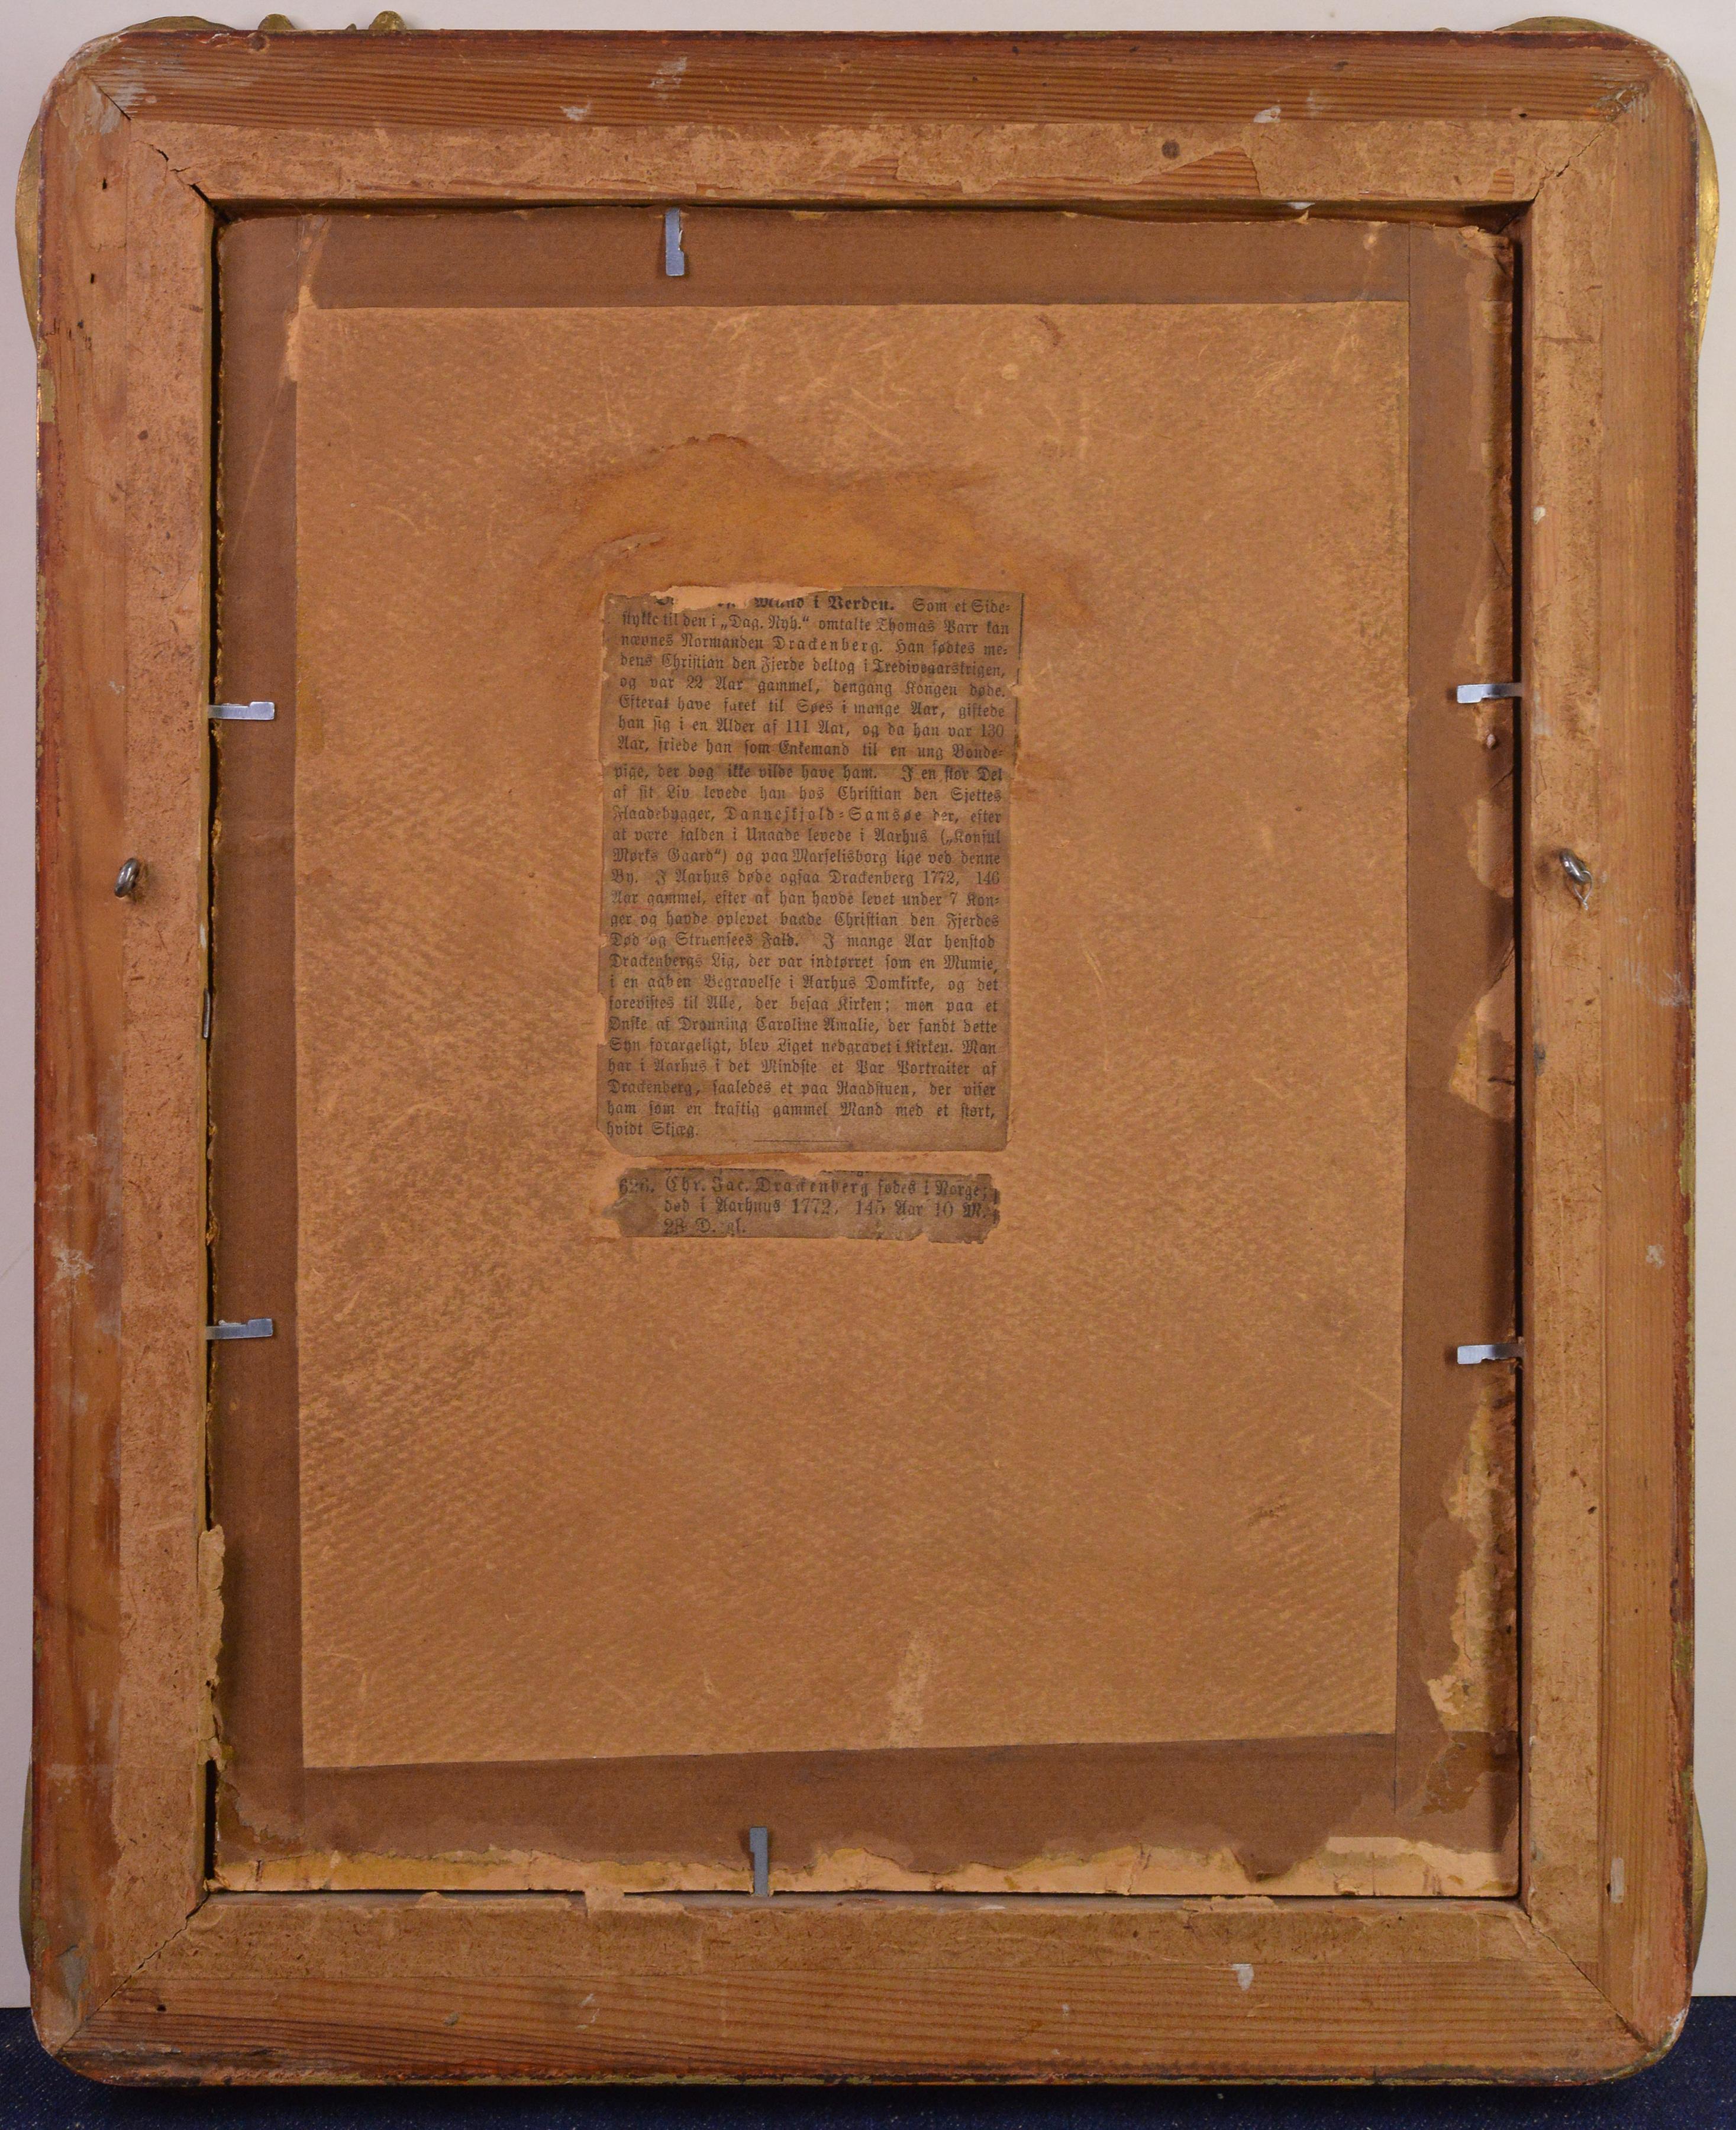 Mand i Verden. Som et Side-
stykke til den i „Dag. Nyh.“ omtalte Thomas Parr kan
nævnes Normanden Drackenberg. Han fødtes me-
dens Christian den Fjerde deltog i Trediveaarskrigen,
og var 22 Aar gammel, dengang Kongen døde.
Efterat have faret til Søes i mange Aar, giftede
han sig i en Alder af 111 Aar, og da han var 130
Aar, friede han som Enkemand til en ung Bonde-
pige, der dog ikke vilde have ham. I en stor Del
af sit Liv levede han hos Christian den Sjettes
Flaadebygger, Danneskjold-Samsøe der, efter
at være falden i Unaade levede i Aarhus („Konsul
Mørks Gaard“) og paa Marselisborg lige ved denne
By. I Aarhus døde ogsaa Drackenberg 1772, 146
Aar gammel, efter at han havde levet under 7 Kon-
ger og havde oplevet baade Christian den Fjerdes
Død og Struensees Fald. I mange Aar henstod
Drackenbergs Lig, der var indtørret som en Mumie,
i en aaben Begravelse i Aarhus Domkirke, og det
forevistes til Alle, der besaa Kirken; men paa et
Ønske af Dronning Caroline Amalie, der fandt dette
Syn forargeligt, blev Liget nedgravet i Kirken. Man
har i Aarhus i det Mindste et Par Portraiter af
Drackenberg, saaledes et paa Raadstuen, der viser
ham som en kraftig gammel Mand med et stort,
hvidt Skjæg.
626. Chr. Jac. Drackenberg fødes i Norge;
død i Aarhuus 1772, 145 Aar 10 M.
28 D. gl.